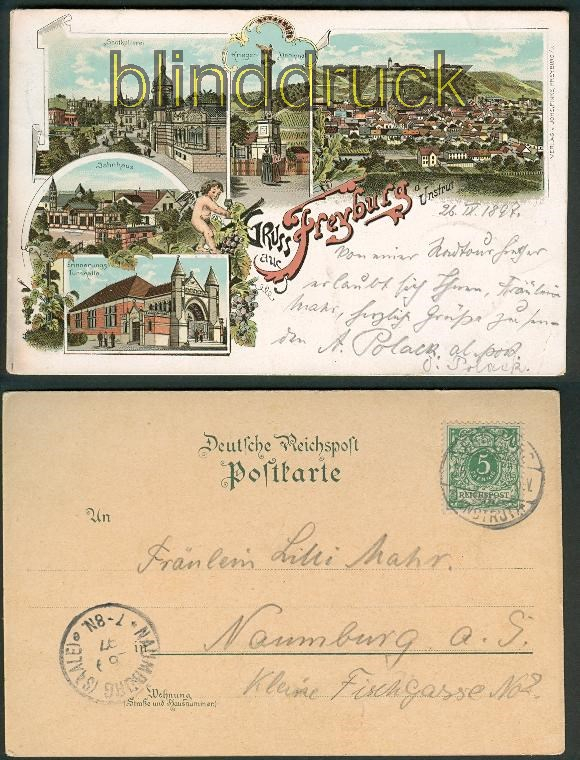 blinddruck
Sectkellerei
Krieger Denkmal
Jahnhaus
Erinnerungs
Turnhalle
VERLAG v. JOHS. FINKE, FREYBURG a/U.
GRUSS
aus
Freyburg a/
Unstrut
26. IX. 1897.
Von einer Radtour hieher
erlaubt sich Ihnen, Fräulein
Mahr, herzlich Grüße zu sen-
den A. Polack,
Polack.
Deutsche Reichspost
Postkarte
5
PFENNIG
REICHSPOST
UNSTRUT
An
Fräulein Lilli Mahr.
in Naumburg a. S.
Wohnung
(Straße und Hausnummer)
Kleine Fischgasse No 2.
NAUMBURG (SAALE)
7-8N
97